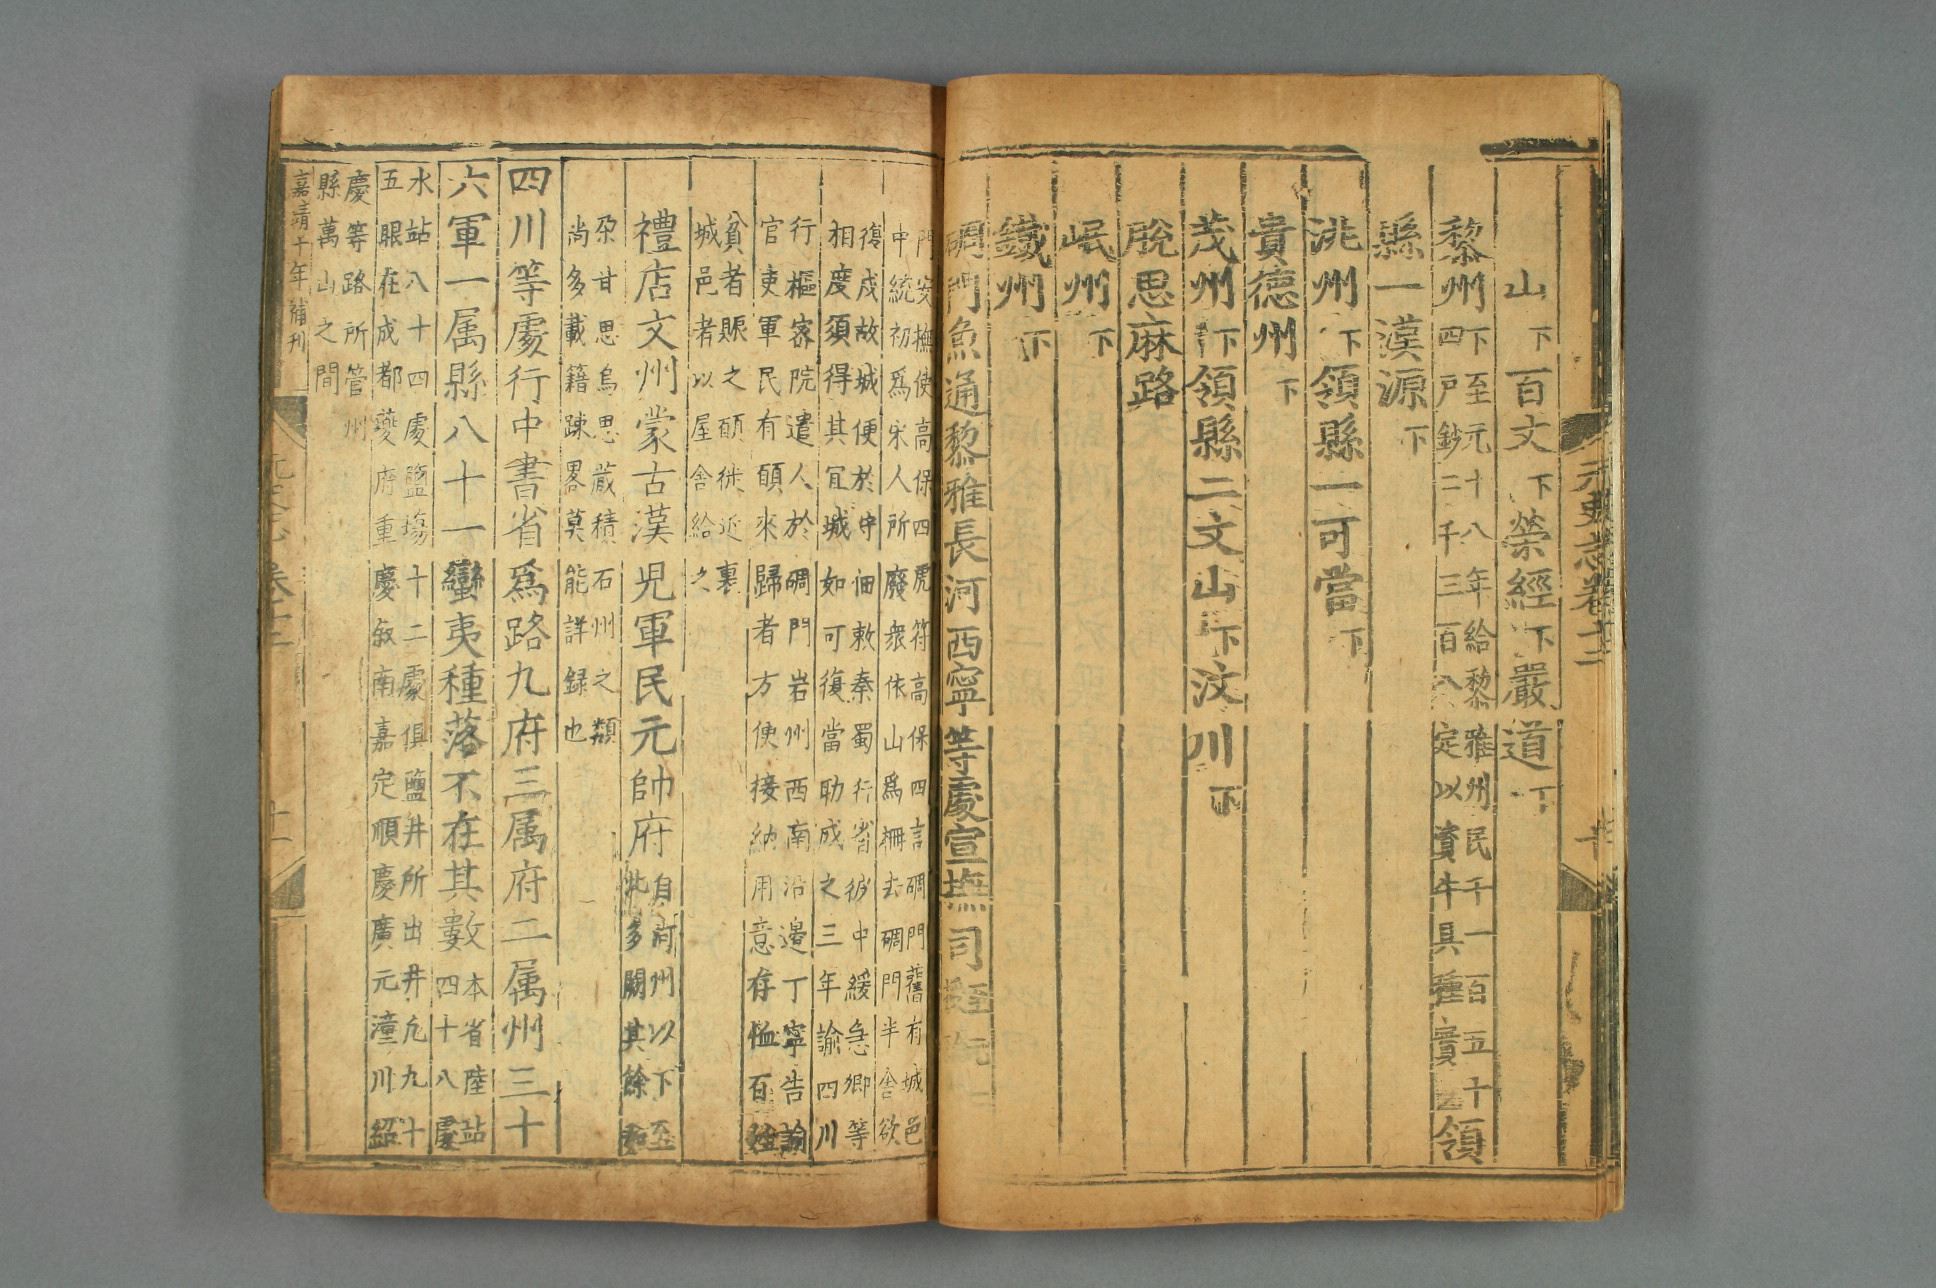 元史志卷十二
山下百丈下榮經下嚴道下
黎州下至元十八年給黎雅州民千一百五十
四戶鈔二千三百八定以資牛具種實領
縣一漢源下
洮州下領縣一可當下
貴德州下
茂州下領縣二文山下汶川下
脫思麻路
岷州下
鐵州下
碉門魚通黎雅長河西寧等處宣撫司
門安撫使高保四虎符高保四言碉門舊有城邑
中統初爲宋人所廢衆依山爲柵去碉門半舍欲
復戍故城便於守佃敕秦蜀行省彼中緩急卿等
相度須得其宜城如可復當助成之三年諭四川
行樞密院遣人於碉門岩州西南沿邊丁寧告諭
官吏軍民有願來歸者方便接納用意存恤百姓
貧者賑之願徙近裏
城邑者以屋舍給之
禮店文州蒙古漢兒軍民元帥府自河州以下至
此多闕其餘如
朶甘思烏思藏積石州之類
尚多載籍踈畧莫能詳録也
四川等處行中書省爲路九府三属府二属州三十
六軍一属縣八十一蠻夷種落不在其數本省陸站
四十八處
水站八十四處鹽塲十二處俱鹽井所出井凢九十
五眼在成都夔府重慶叙南嘉定順慶廣元潼川紹
慶等路所管州
縣萬山之間
嘉靖十年補刊